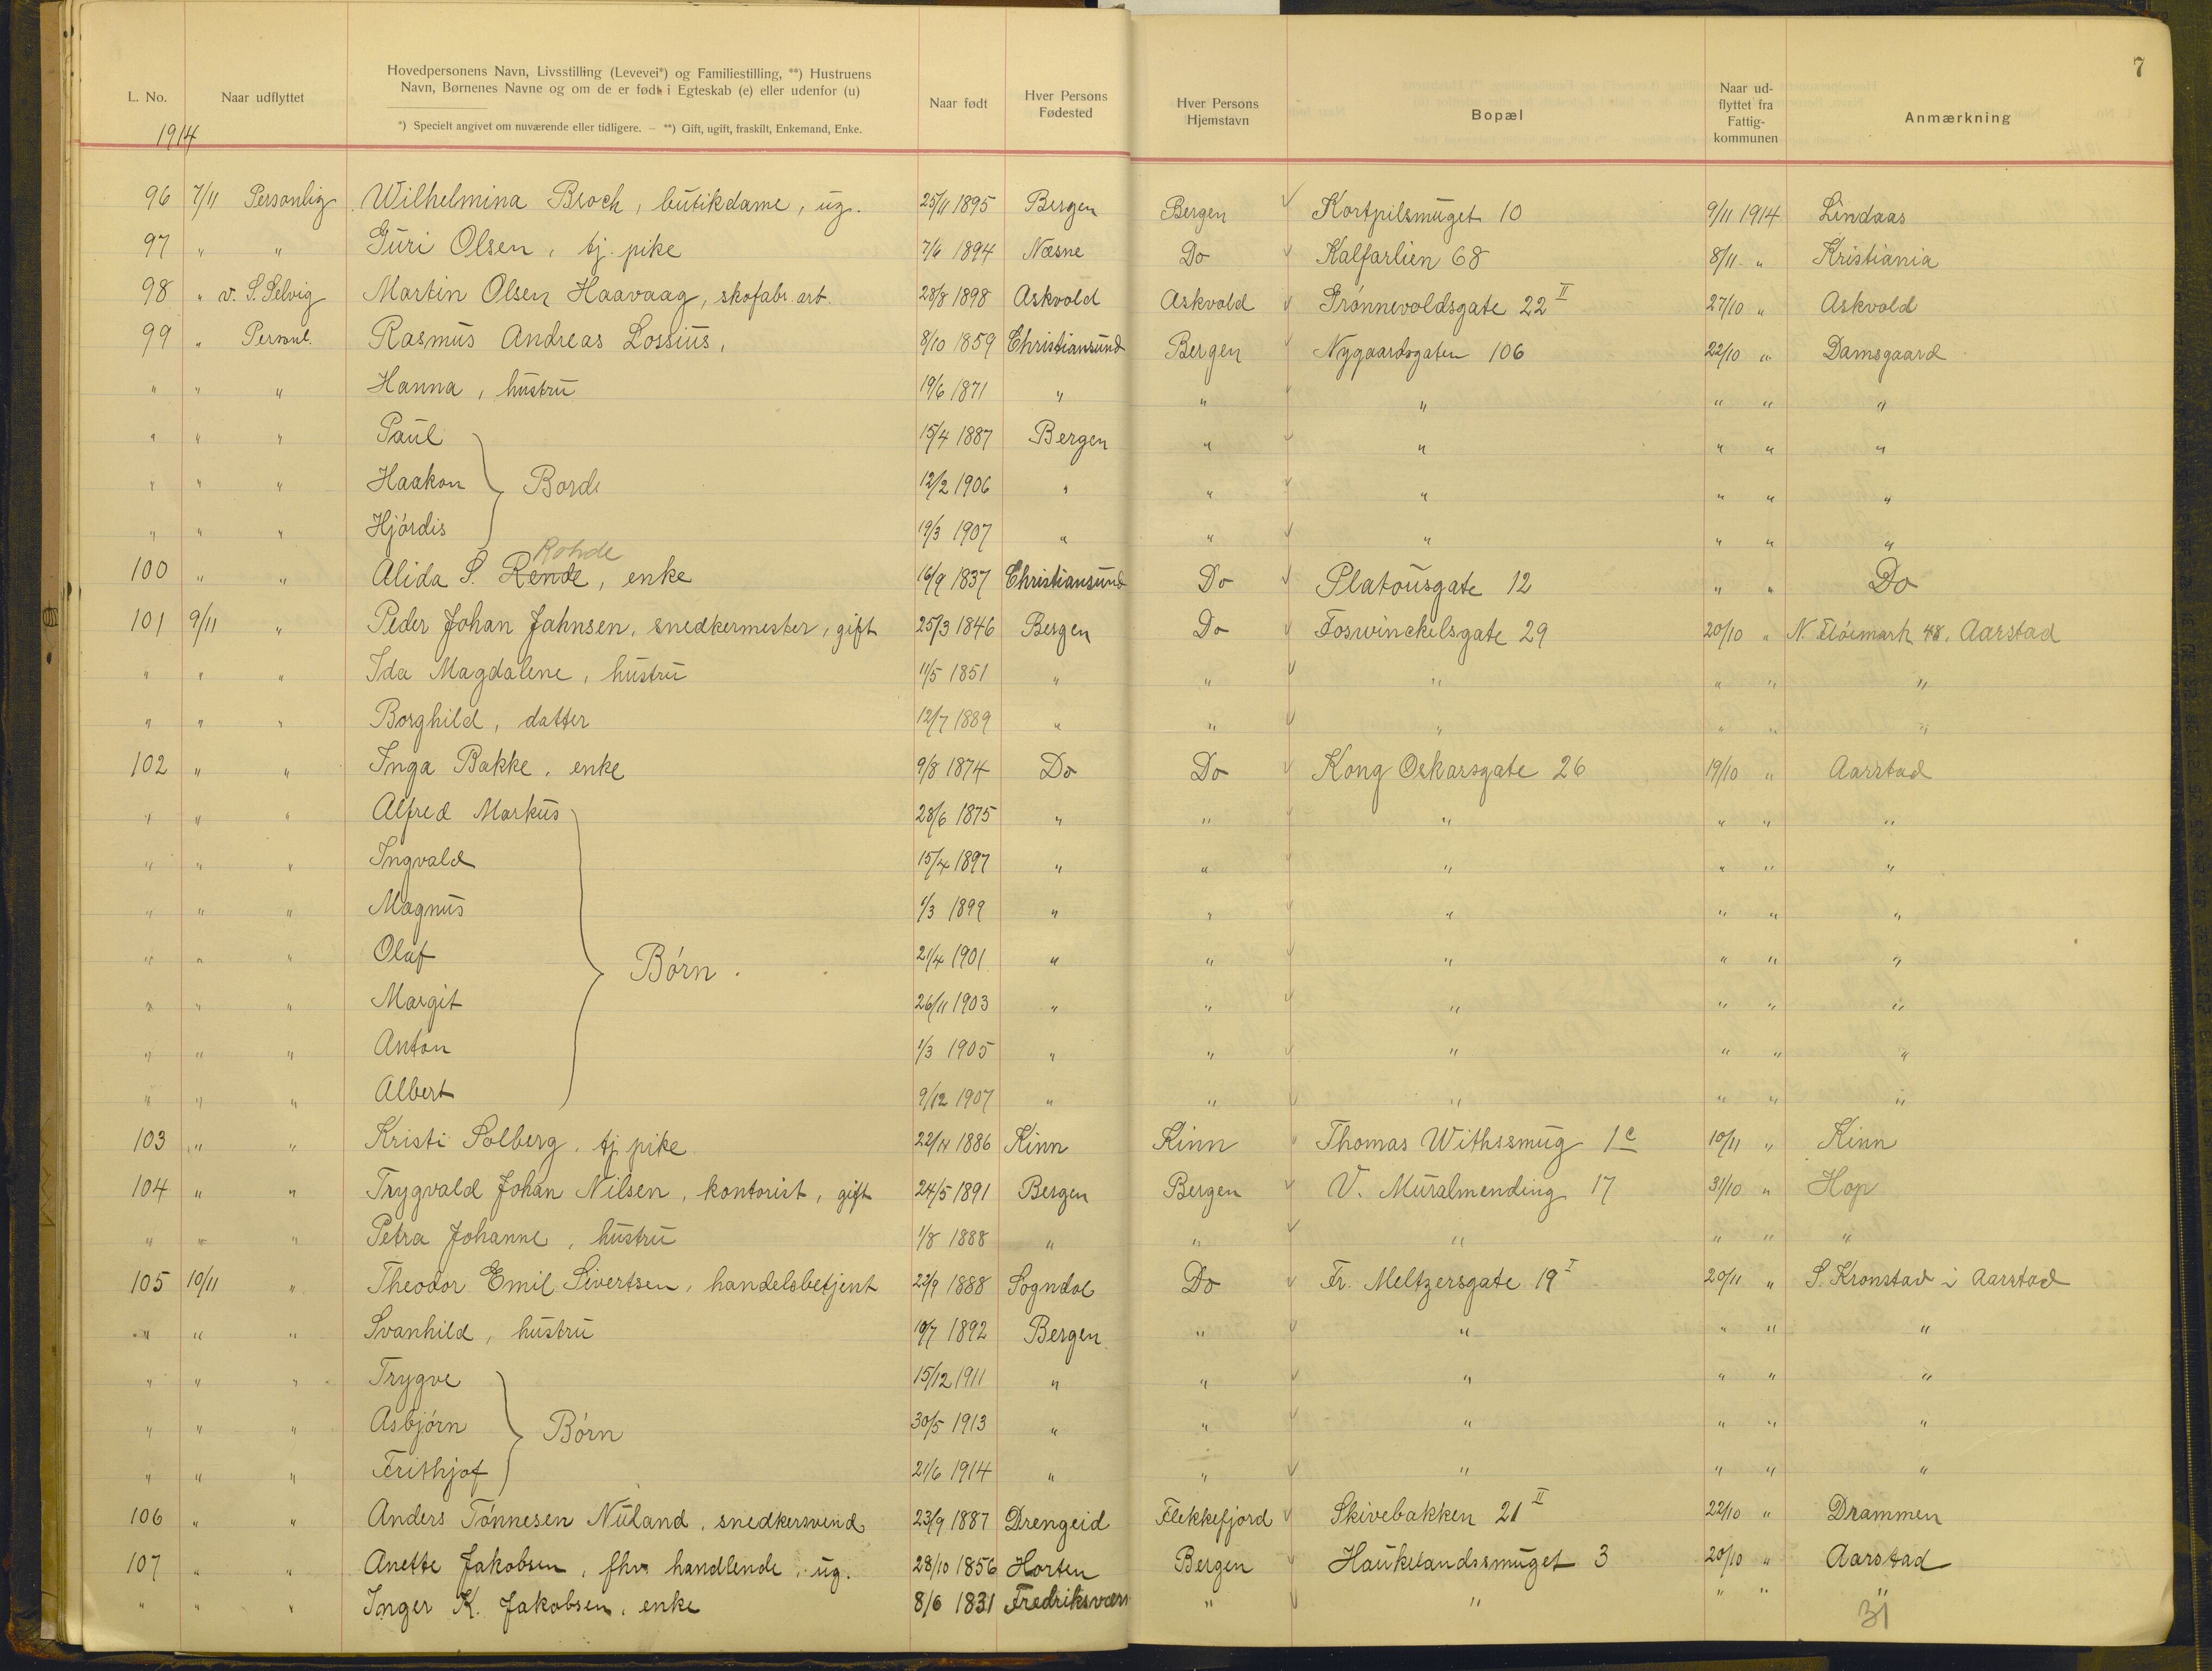 7
L. No. Naar udflyttet Hovedpersonens Navn, Livsstilling (Levevei*) og Familiestilling, **) Hustruens Navn, Børnenes Navne og om de er født i Egteskab (e) eller udenfor (u) Naar født Hver Persons Fødested Hver Persons Hjemstavn Bopæl Naar ud-flyttet fra Fattig-kommunen Anmærkning
*) Specielt angivet om nuværende eller tidligere. — **) Gift, ugift, fraskilt, Enkemand, Enke.
1914
96 7/11 Personlig Wilhelmina Broch, butikdame, ug. 25/11 1895 Bergen Bergen √ Kortpilsmuget 10 9/11 1914 Lindaas
97 " " Guri Olsen, tj. pike 7/6 1894 Næsne Do √ Kalfarlien 68 8/11 " Kristiania
98 " v. S. Selvig Martin Olsen Haavaag, skofabr. arb. 28/8 1898 Askvold Askvold √ Grønnevoldsgate 22 II 27/10 " Askvold
99 " Personl. Rasmus Andreas Lossius, 8/10 1859 Christiansund Bergen √ Nygaardsgaten 106 22/10 " Damsgaard
" " " Hanna, hustru 19/6 1871 " " √ " " " "
" " " Paul 15/4 1887 Bergen " √ " " " "
" " " Haakon } Børn 12/2 1906 " " √ " " " "
" " " Hjördis 19/3 1907 " " √ " " " "
Rohde
100 " " Alida S. Rende, enke 16/9 1837 Christiansund Do √ Platousgate 12 " " Do
101 9/11 " Peder Johan Jahnsen, snedkermester, gift 25/3 1846 Bergen Do √ Foswinckelsgate 29 20/10 " N. Fløemark 48, Aarstad
" " " Ida Magdalene, hustru 11/5 1851 " " √ " " " "
" " " Borghild, datter 12/7 1889 " " √ " " " "
102 " " Inga Bakke, enke 9/8 1874 Do Do √ Kong Oskarsgate 26 19/10 " Aarstad
" " " Alfred Markus 28/6 1875 " " √ " " " "
" " " Ingvald 15/4 1897 " " √ " " " "
" " " Magnus 1/3 1899 " " √ " " " "
" " " Olaf } Børn. 21/4 1901 " " √ " " " "
" " " Margit 26/11 1903 " " √ " " " "
" " " Anton 1/3 1905 " " √ " " " "
" " " Albert 9/12 1907 " " √ " " " "
103 " " Kristi Solberg, tj. pike 22/4 1886 Kinn Kinn √ Thomas Withssmug 1c 10/11 " Kinn
104 " " Trygvald Johan Nilsen, kontorist, gift 24/5 1891 Bergen Bergen √ V. Muralmending 17 31/10 " Hop
" " " Petra Johanne, hustru 1/8 1888 " " √ " " " "
105 10/11 " Theodor Emil Sivertsen, handelsbetjent 22/9 1888 Sogndal Do √ Fr. Meltzersgate 19 I 20/11 " S. Kronstad i Aarstad
" " " Svanhild, hustru 10/7 1892 Bergen " √ " " " "
" " " Trygve 15/12 1911 " " √ " " " "
" " " Asbjørn } Børn 30/5 1913 " " √ " " " "
" " " Frithjof 21/6 1914 " " √ " " " "
106 " " Anders Tønnesen Nuland, snedkersvend 23/9 1887 Drengeid Flekkefjord √ Skivebakken 21 II 22/10 " Drammen
107 " " Anette Jakobsen, fhv. handlende, ug. 28/10 1856 Horten Bergen √ Haukelandssmuget 3 20/10 " Aarstad
" " " Inger K. Jakobsen, enke 8/6 1831 Fredriksværn " √ " " " "
31